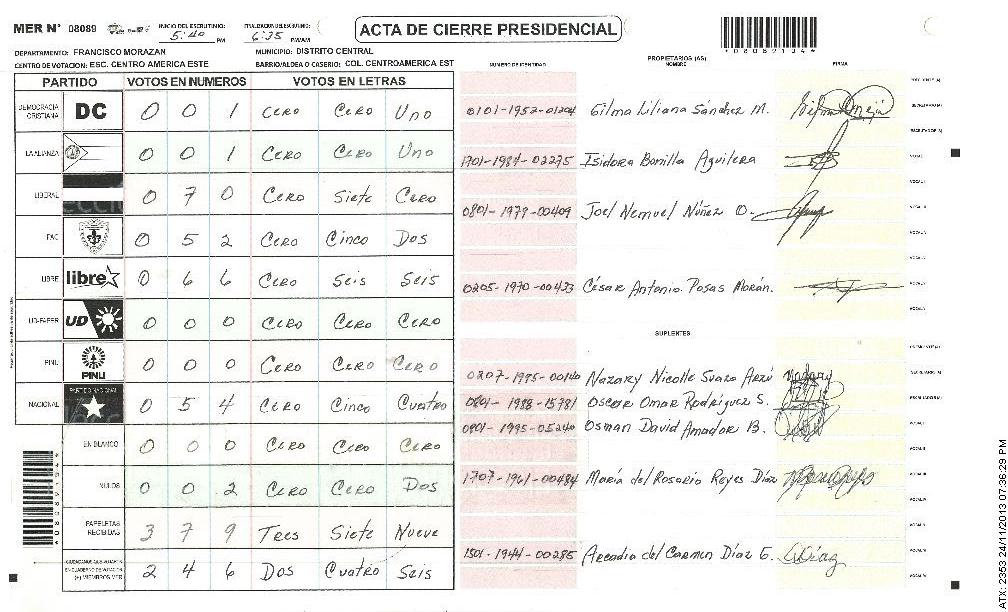 MER Nº 08089
INICIO DEL ESCRUTINIO: 5:40 PM
FINALIZACION DEL ESCRUTINIO: 6:35 PM/AM
ACTA DE CIERRE PRESIDENCIAL
DEPARTAMENTO: FRANCISCO MORAZAN
MUNICIPIO: DISTRITO CENTRAL
CENTRO DE VOTACION: ESC. CENTRO AMERICA ESTE
BARRIO/ALDEA O CASERIO: COL. CENTROAMERICA EST
NUMERO DE IDENTIDAD
PROPIETARIOS (AS)
NOMBRE
FIRMA
PARTIDO VOTOS EN NUMEROS VOTOS EN LETRAS
DEMOCRACIA CRISTIANA DC 0 0 1 Cero Cero Uno
LA ALIANZA 0 0 1 Cero Cero Uno
LIBERAL 0 7 0 Cero Siete Cero
PAC 0 5 2 Cero Cinco Dos
LIBRE libre 0 6 6 Cero Seis Seis
UD-FAPER UD 0 0 0 Cero Cero Cero
PINU PINU 0 0 0 Cero Cero Cero
NACIONAL PARTIDO NACIONAL 0 5 4 Cero Cinco Cuatro
EN BLANCO 0 0 0 Cero Cero Cero
NULOS 0 0 2 Cero Cero Dos
PAPELETAS RECIBIDAS 3 7 9 Tres Siete Nueve
CIUDADANOS QUE VOTARON EN CUADERNO DE VOTACION (+) MIEMBROS MER 2 4 6 Dos Cuatro Seis
0101-1952-01204 Gilma Liliana Sánchez M.
1701-1987-02275 Isidora Bonilla Aguilera
0801-1979-00409 Joel Nemuel Núñez O.
0205-1970-00423 César Antonio Posas Morán.
SUPLENTES
0207-1995-00140 Nazary Nicolle Suazo
0801-1988-15781 Oscar Omar Rodríguez S.
0801-1995-05240 Osman David Amador B.
1707-1961-00484 María del Rosario Reyes Díaz
1501-1944-00285 Arcadia del Carmen Díaz E.
ATX: 2353 24/11/2013 07:36:29 PM